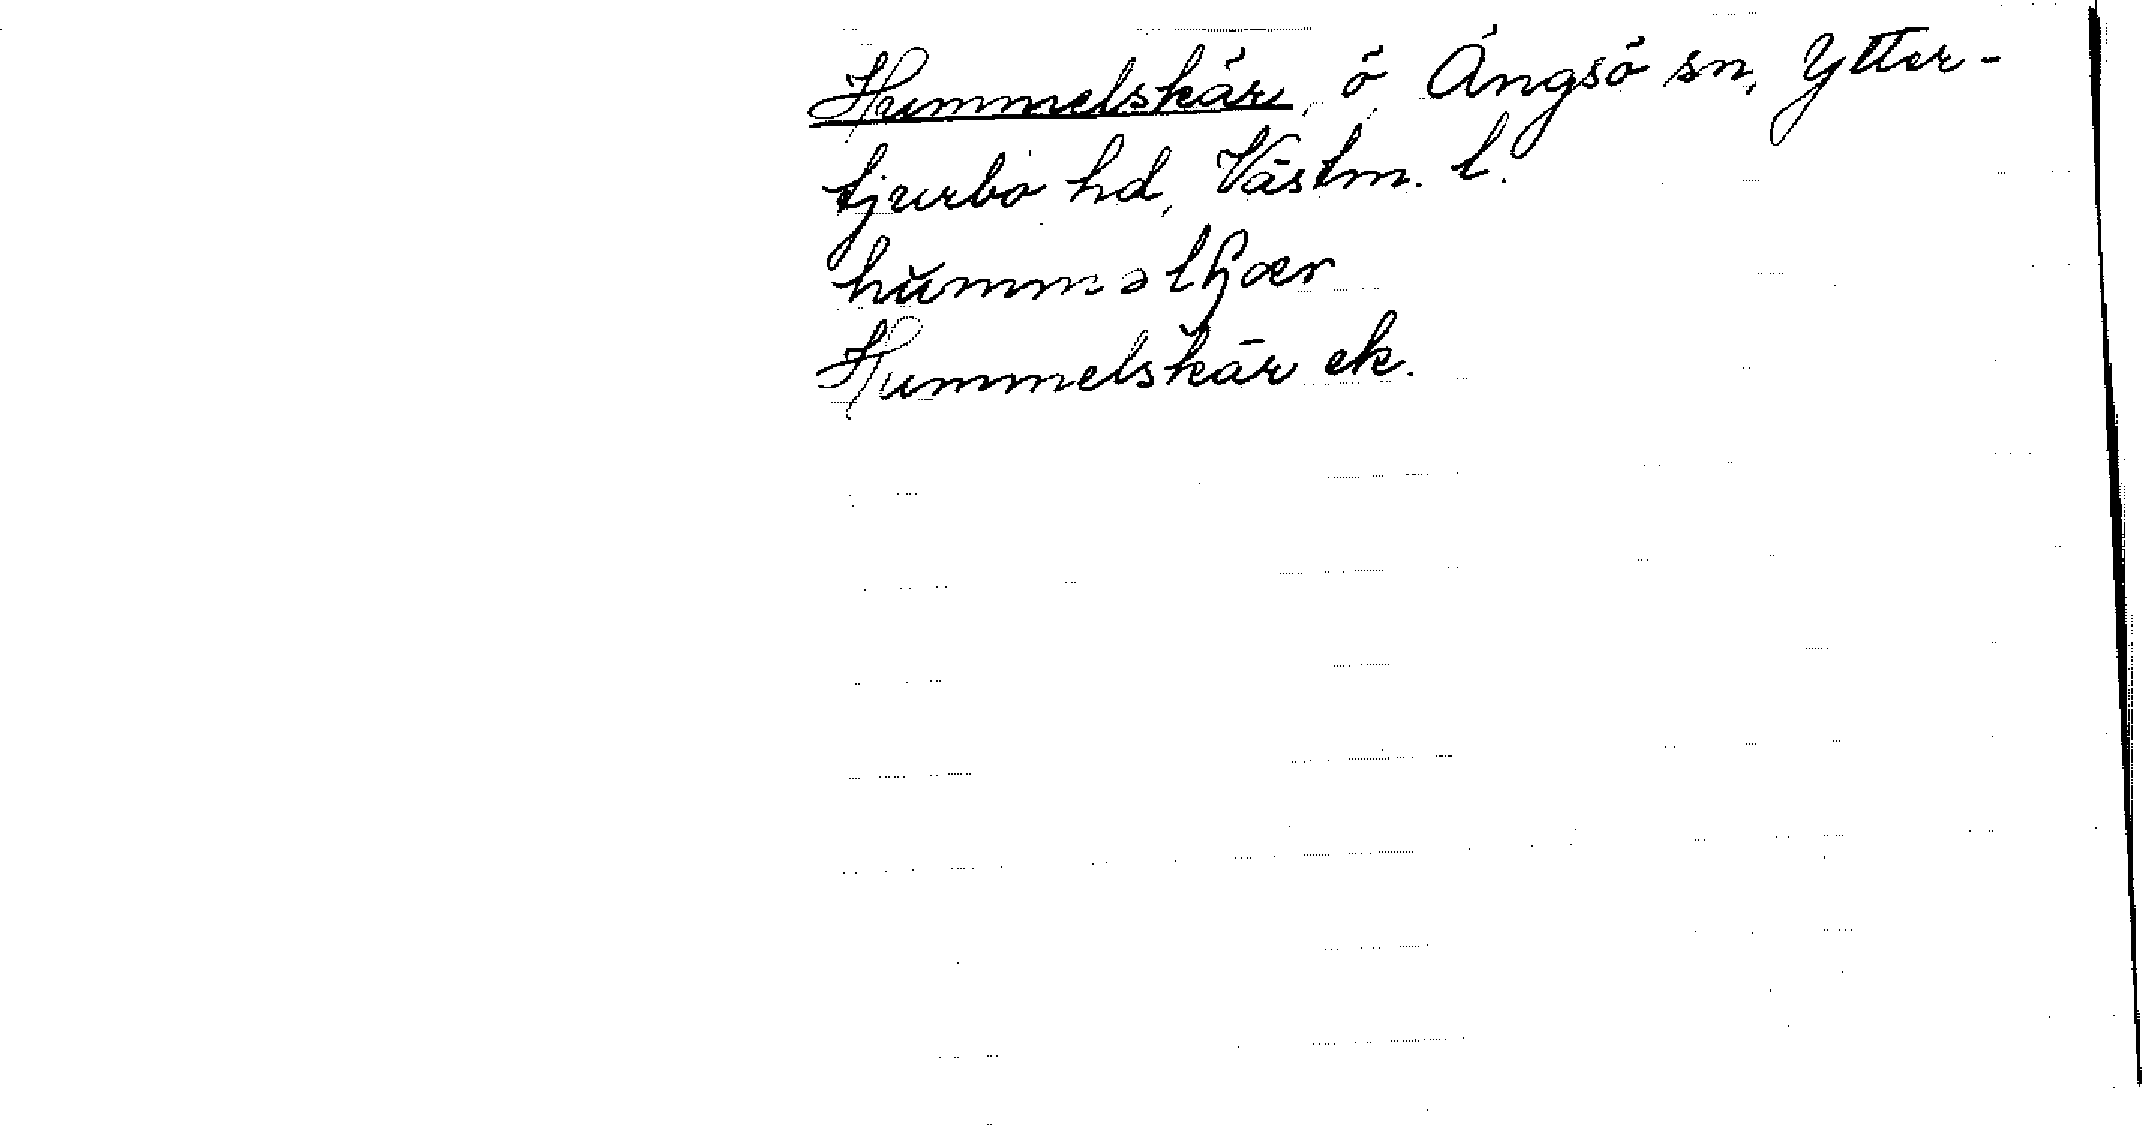 Hummelskär, ö, Ängsö sn, Ytter-
tjurbo hd, Västm. l.
hŭmməlɧær
Hummelskär ek.